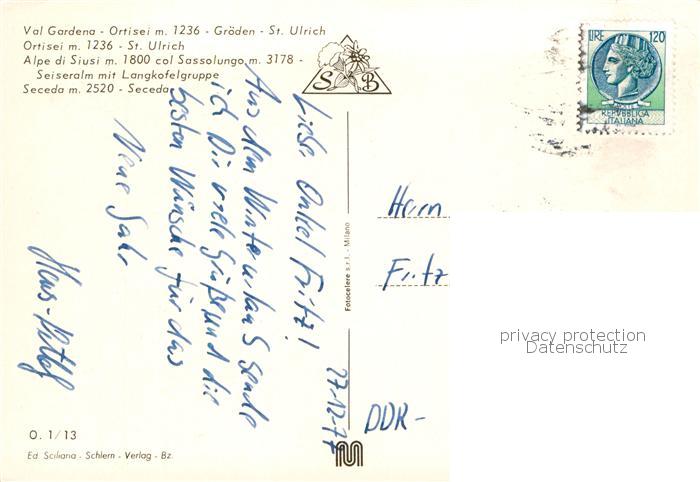 Val Gardena - Ortisei m. 1236 - Gröden - St. Ulrich
Ortisei m. 1236 - St. Ulrich
Alpe di Siusi m. 1800 col Sassolungo m. 3178 -
Seiseralm mit Langkofelgruppe
Seceda m. 2520 - Seceda
S B
LIRE 120
REPVBBLICA
ITALIANA
27.12.77
Liebe Onkel Fritz!
Aus dem Winterurlaub sende
ich Dir viele Grüße und die
besten Wünsche für das
Neue Jahr
Hans-
Fotocelere s.r.l. - Milano
Herrn
Fritz
DDR -
privacy protection
Datenschutz
O. 1/13
Ed. Sciliana - Schlern - Verlag - Bz.